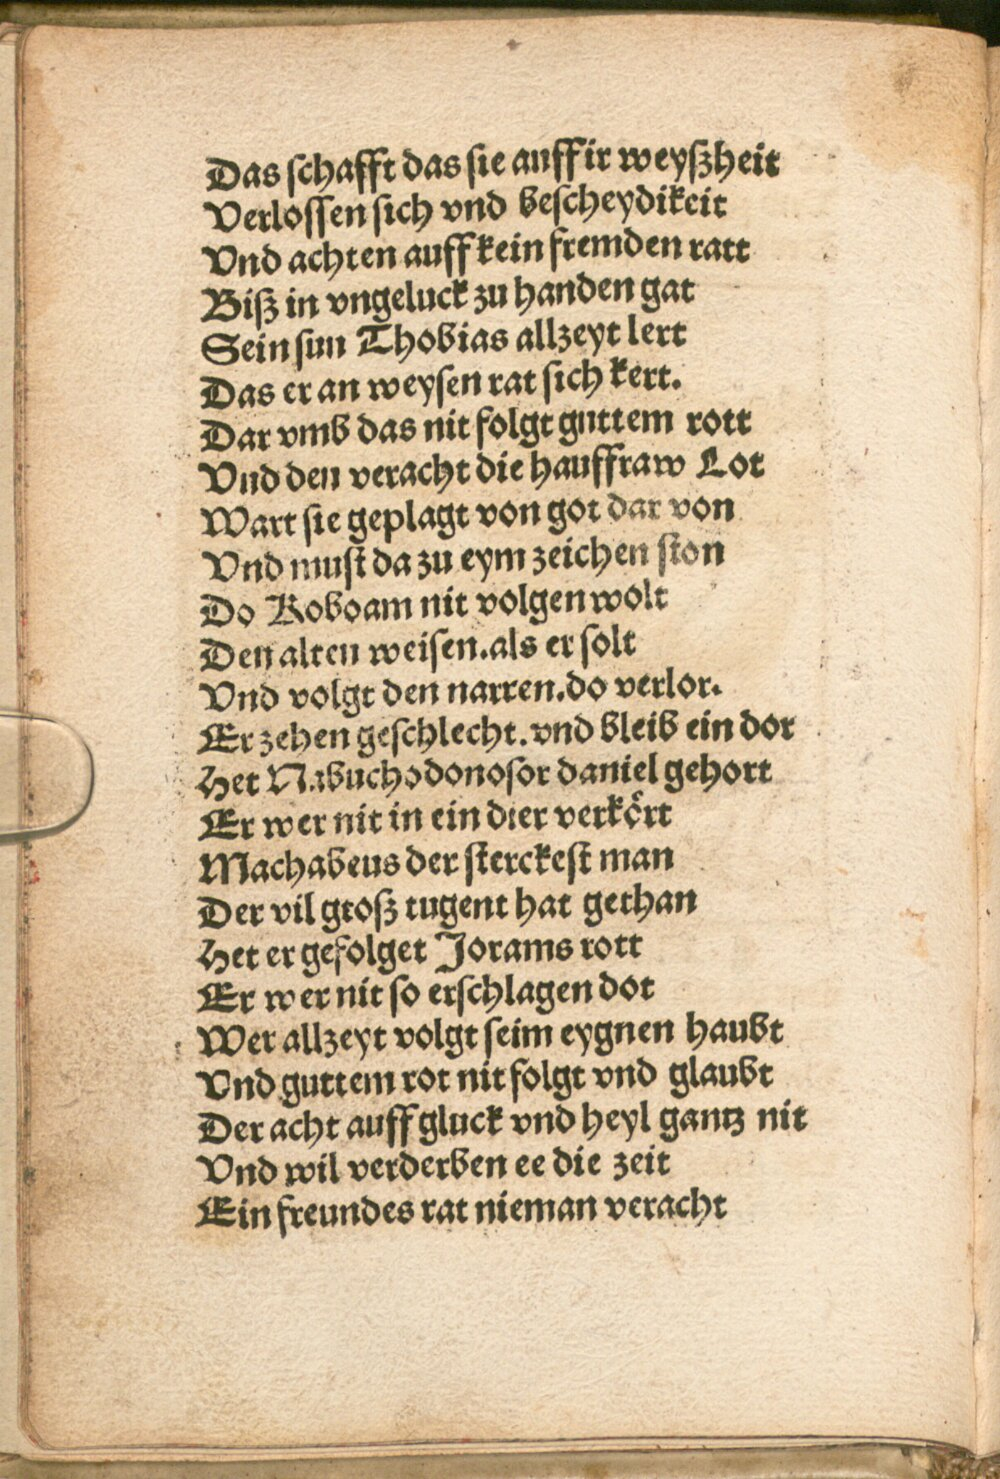 Das schafft das sie auff ir weyßheit
Verlossen sich vnd bescheydikeit
Vnd achten auff kein fremden ratt
Biß in vngeluck zu handen gat
Sein sun Thobias allzeyt lert
Das er an weysen rat sich kert.
Dar vmb das nit folgt guttem rott
Vnd den veracht die hauffraw Lot
Wart sie geplagt von got dar von
Vnd must da zu eym zeichen ston
Do Roboam nit volgen wolt
Den alten weisen. als er solt
Vnd volgt den narren. do verlor.
Er zehen geschlecht. vnd bleib ein dor
Het Nabuchodonosor daniel gehort
Er wer nit in ein dier verkoͤrt
Machabeus der sterckest man
Der vil groß tugent hat gethan
Het er gefolget Jorams rott
Er wer nit so erschlagen dot
Wer allzeyt volgt seim eygnen haubt
Vnd guttem rot nit folgt vnd glaubt
Der acht auff gluck vnd heyl gantz nit
Vnd wil verderben ee die zeit
Ein freundes rat nieman veracht